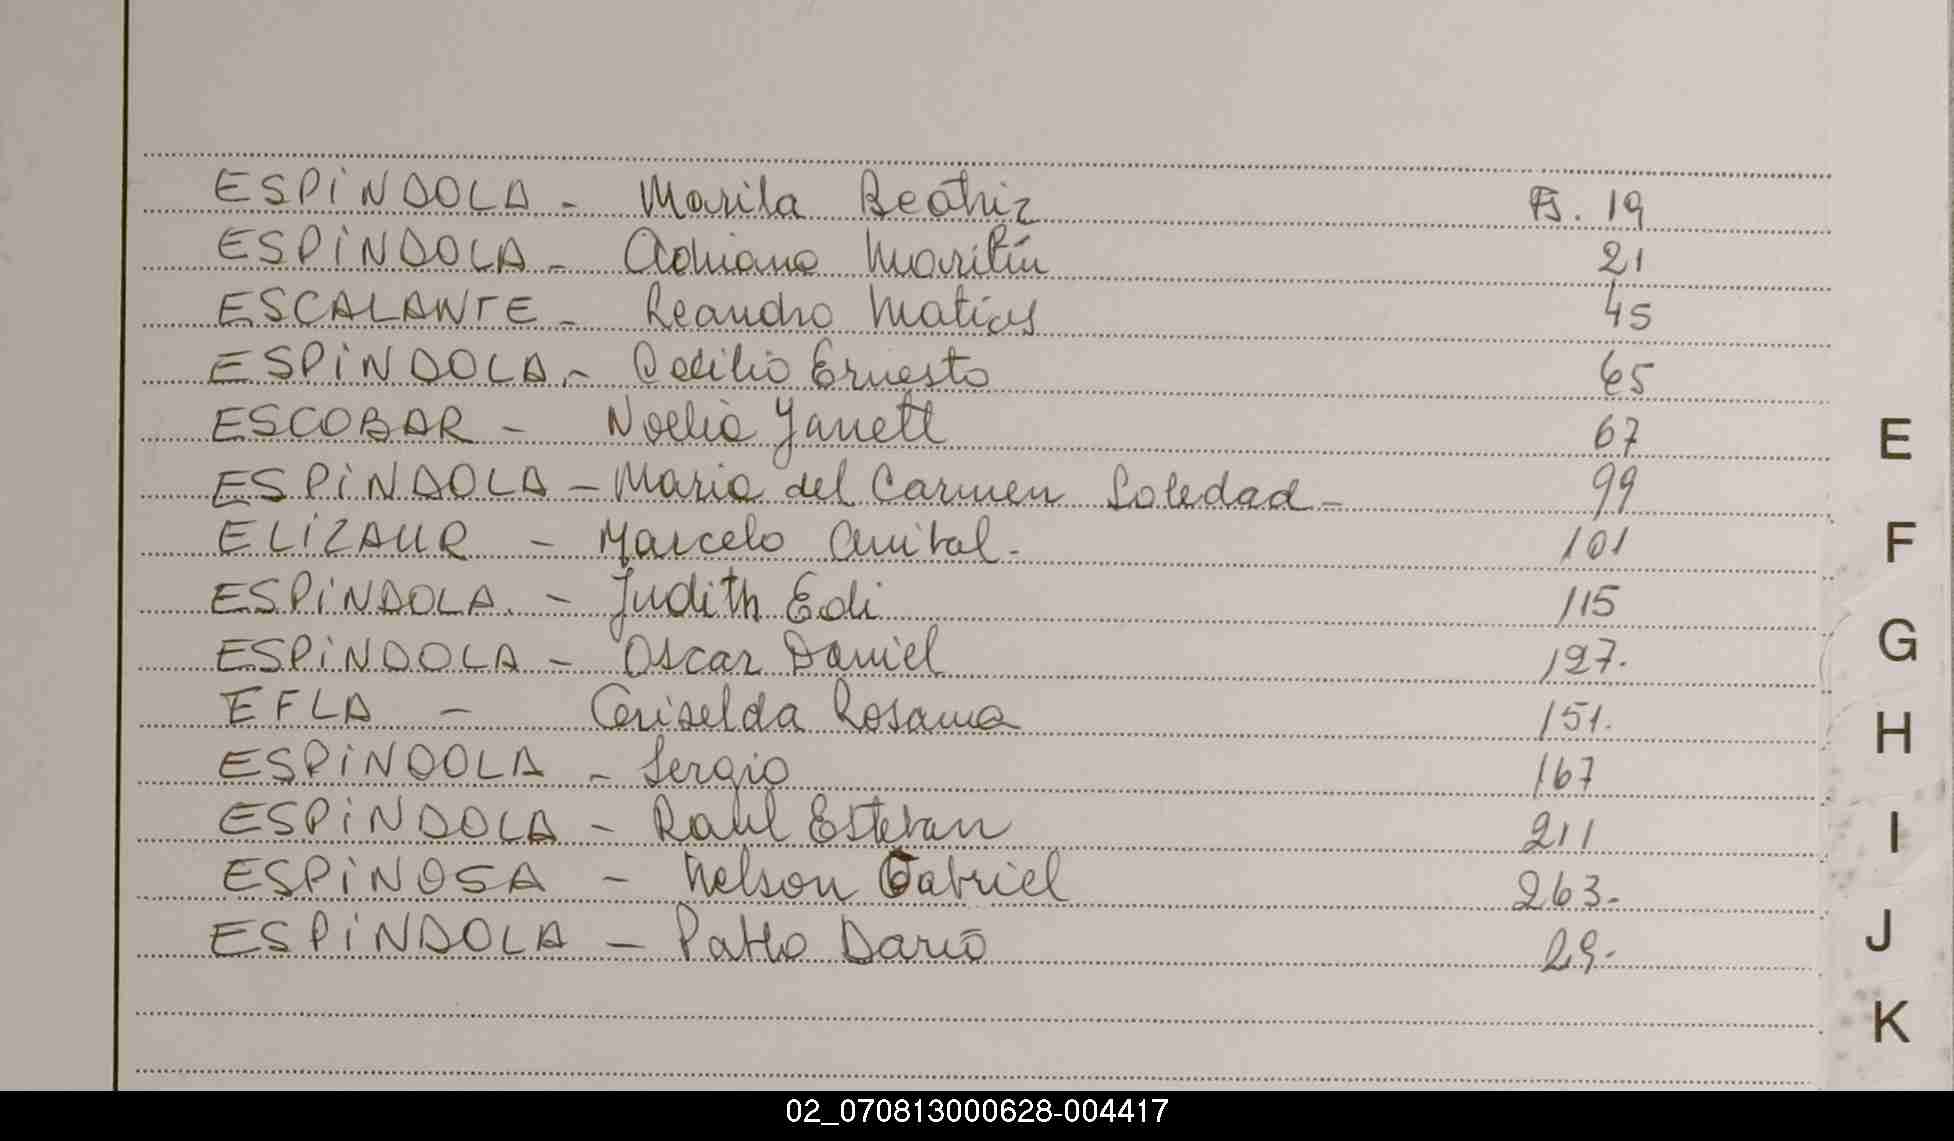 ESPINDOLA - Marila Beatriz Fs. 19
ESPINDOLA - Adriana Marilin 21
ESCALANTE - Leandro Matias 45
ESPINDOLA - Cecilio Ernesto 65
ESCOBAR - Noelia Yanett 67
ESPINDOLA - Maria del Carmen Soledad - 99
ELIZAUR - Marcelo Anibal - 101
ESPINDOLA. - Judith Edi 115
ESPINDOLA - Oscar Daniel 127.
EFLA - Griselda Rosana 151.
ESPINDOLA - Sergio 167
ESPINDOLA - Raul Esteban 211
ESPINOSA - Nelson Gabriel 263.
ESPINDOLA - Pablo Dario 29.
E
F
G
H
I
J
K
02_070813000628-004417